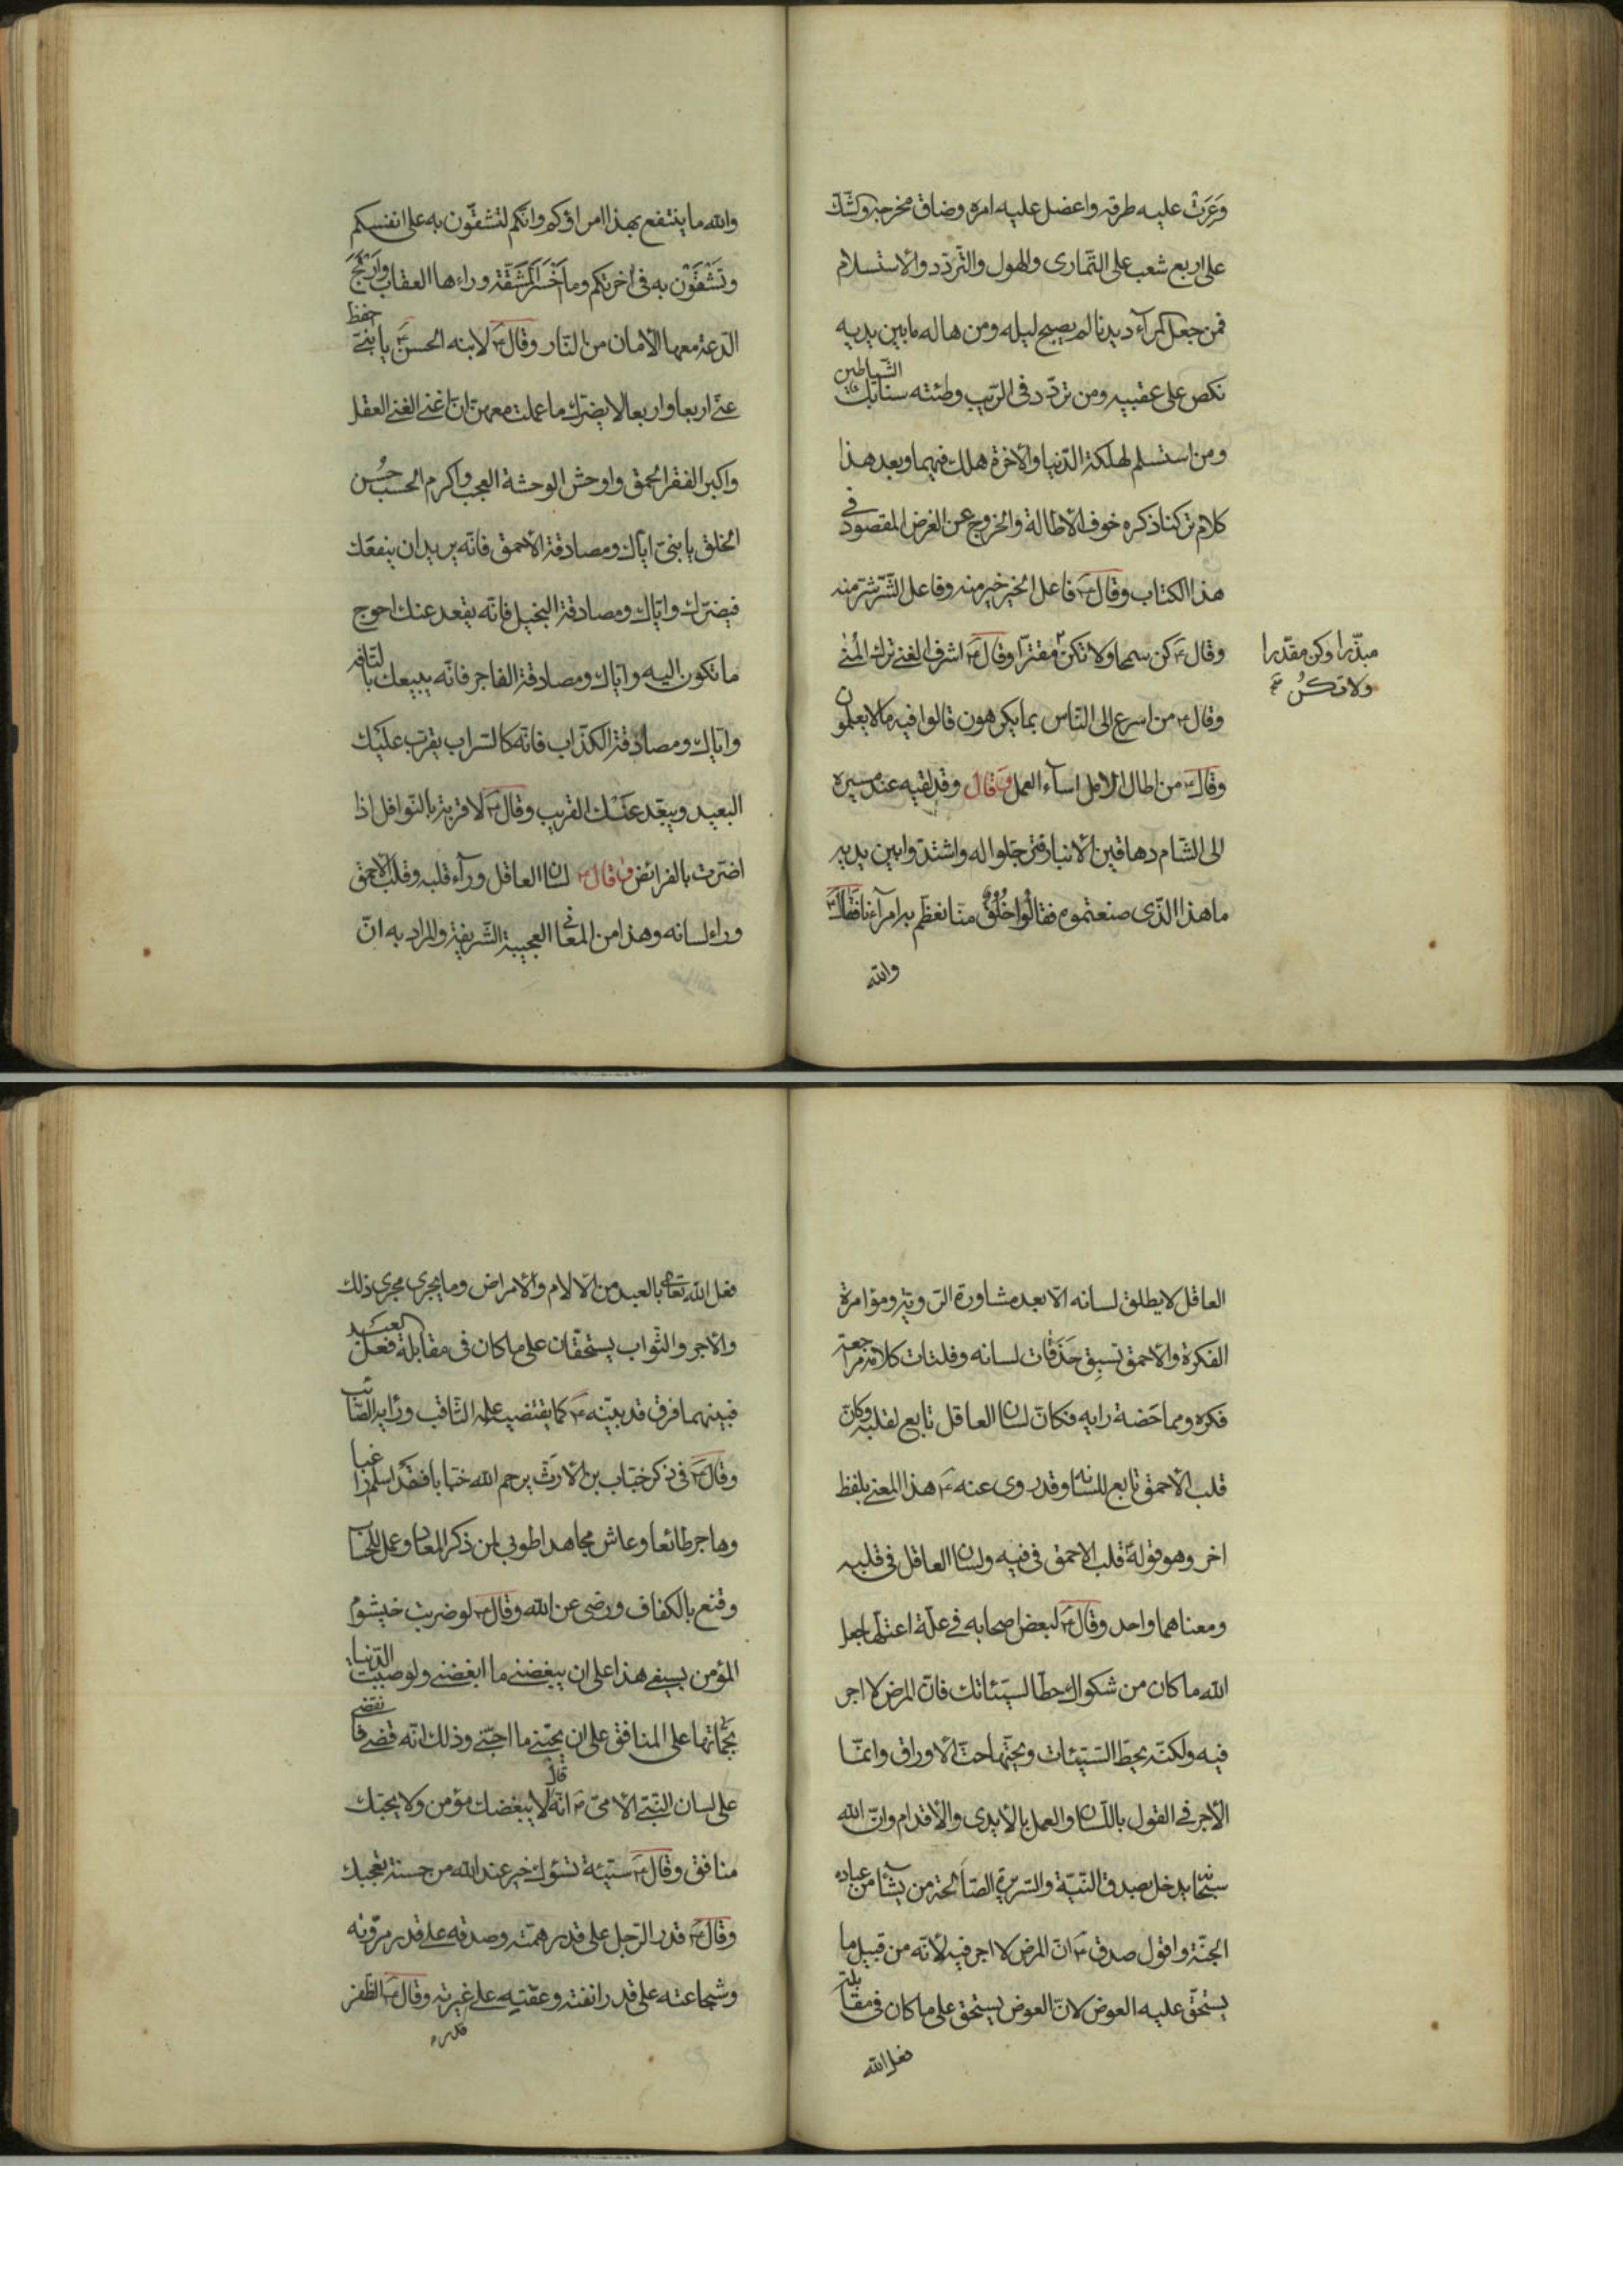 وَعَرَت عليه طرقه واعضل عليه امره وضاق مخرجه والشّك
على اربع شعب على التّمارى والهول والتّردّد والاستسلام
فمن جعل المرآء ديدنا لم يصبح ليله ومن هاله ما بين يديه
نكص على عقبيه ومن تردّد فى الرّيب وطئته سنابك الشّياطين
ومن استسلم لهلكة الدّنيا والاخرة هلك فيهما وبعد هذا
كلام تركنا ذكره خوف الاطالة والخروج عن الغرض المقصود فى
هذا الكتاب وقال ع فاعل الخير خير منه وفاعل الشّرّ شرّ منه
وقال ع كن سمحا ولا تكن مقترا وقال ع اشرف الغنى ترك المُنى
مبذّرا وكن مقدّرا
ولا تكن
وقال ع من اسرع الى النّاس بما يكرهون قالوا فيه ما لا يعلمون
وقال ع من اطال الامل اسآء العمل وقال وقد لقيه عند مسيره
الى الشام دهاقين الانبار فترجّلوا له واشتدّوا بين يديه
ما هذا الّذى صنعتموه فقالوا خُلُقٌ منّا نعظّم به امرآءنا فقال ع
والله
والله ما ينتفع بهذا امراؤكم وانّكم لتشقّون به على انفسكم
وتَشْقَوْن به فى اخرتكم وما اخسر المَشَقّة وراءها العقاب واربح
الدّعة معها الامان من النّار وقال ع لابنه الحسن ع يا بنىّ احفظ
عنّى اربعا واربعا لا يضرّك ما عملت معهنّ انّ اغنى الغنى العقل
واكبر الفقر الحمق واوحش الوحشة العجب واكرم الحسب حُسن
الخلق يا بنىّ ايّاك ومصادقة الاحمق فانّه يريد ان ينفعك
فيضرّك وايّاك ومصادقة البخيل فانّه يقعد عنك احوج
ما تكون اليه وايّاك ومصادقة الفاجر فانّه يبيعك بالتّافه
وايّاك ومصادقة الكذّاب فانّه كالسّراب يقرّب عليك
البعيد ويبعّد عنك القريب وقال ع لا قربة بالنّوافل اذا
اضرّت بالفرائض وقال ع لسان العاقل ورآء قلبه وقلب الاحمق
وراء لسانه وهذا من المعانى العجيبة الشّريفة والمراد به انّ
العاقل لا يطلق لسانه الّا بعد مشاورة الرّويّة ومؤامرة
الفكرة والاحمق تسبق حَذَفات لسانه وفلتات كلامه مراجعة
فكره ومماخضة رايه فكانّ لسان العاقل تابع لقلبه وكانّ
قلب الاحمق تابع للسانه وقد روى عنه ع هذا المعنى بلفظ
اخر وهو قوله قلب الاحمق فى فيه ولسان العاقل فى قلبه
ومعناهما واحد وقال ع لبعض اصحابه فى علّة اعتلّها جعل
الله ما كان من شكواك حطّا لسيّئاتك فانّ المرض لا اجر
فيه ولكنّه يحطّ السّيّئات ويحتّها حتّ الاوراق وانّما
الاجر فى القول باللّسان والعمل بالايدى والاقدام وانّ الله
سبحانه يدخل بصدق النّيّة والسّريرة الصّالحة من يشآء من عباده
الجنّة واقول صدق ع انّ المرض لا اجر فيه لانّه من قبيل ما
يستحقّ عليه العوض لانّ العوض يستحقّ على ما كان فى مقابلة
فعل الله
فعل الله تعالى بالعبد من الالام والامراض وما يجرى مجرى ذلك
والاجر والثّواب يستحقّان على ما كان فى مقابلة فعل العبد
فبينهما فرق قد بيّنه ع كما يقتضيه علمه الثّاقب ورايه الصّائب
وقال ع فى ذكر خبّاب بن الارتّ يرحم الله خبّابا فقد اسلم راغبا
وهاجر طائعا وعاش مجاهدا طوبى لمن ذكر المعاد وعمل للحساب
وقنع بالكفاف ورضى عن الله وقال ع لو ضربت خيشوم
المؤمن بسيفى هذا على ان يبغضنى ما ابغضنى ولو صببت الدّنيا
بجمّاتها على المنافق على ان يحبّنى ما احبّنى وذلك انّه قضى فانقضى
على لسان النّبىّ الامىّ ص انّه قال لا يبغضك مؤمن ولا يحبّك
منافق وقال ع سيّئة تسؤك خير عند الله من حسنة تعجبك
وقال ع قدر الرّجل على قدر همّته وصدقه على قدر مروّته
وشجاعته على قدر انفته وعفّته على غيرته وقال ع الظّفر